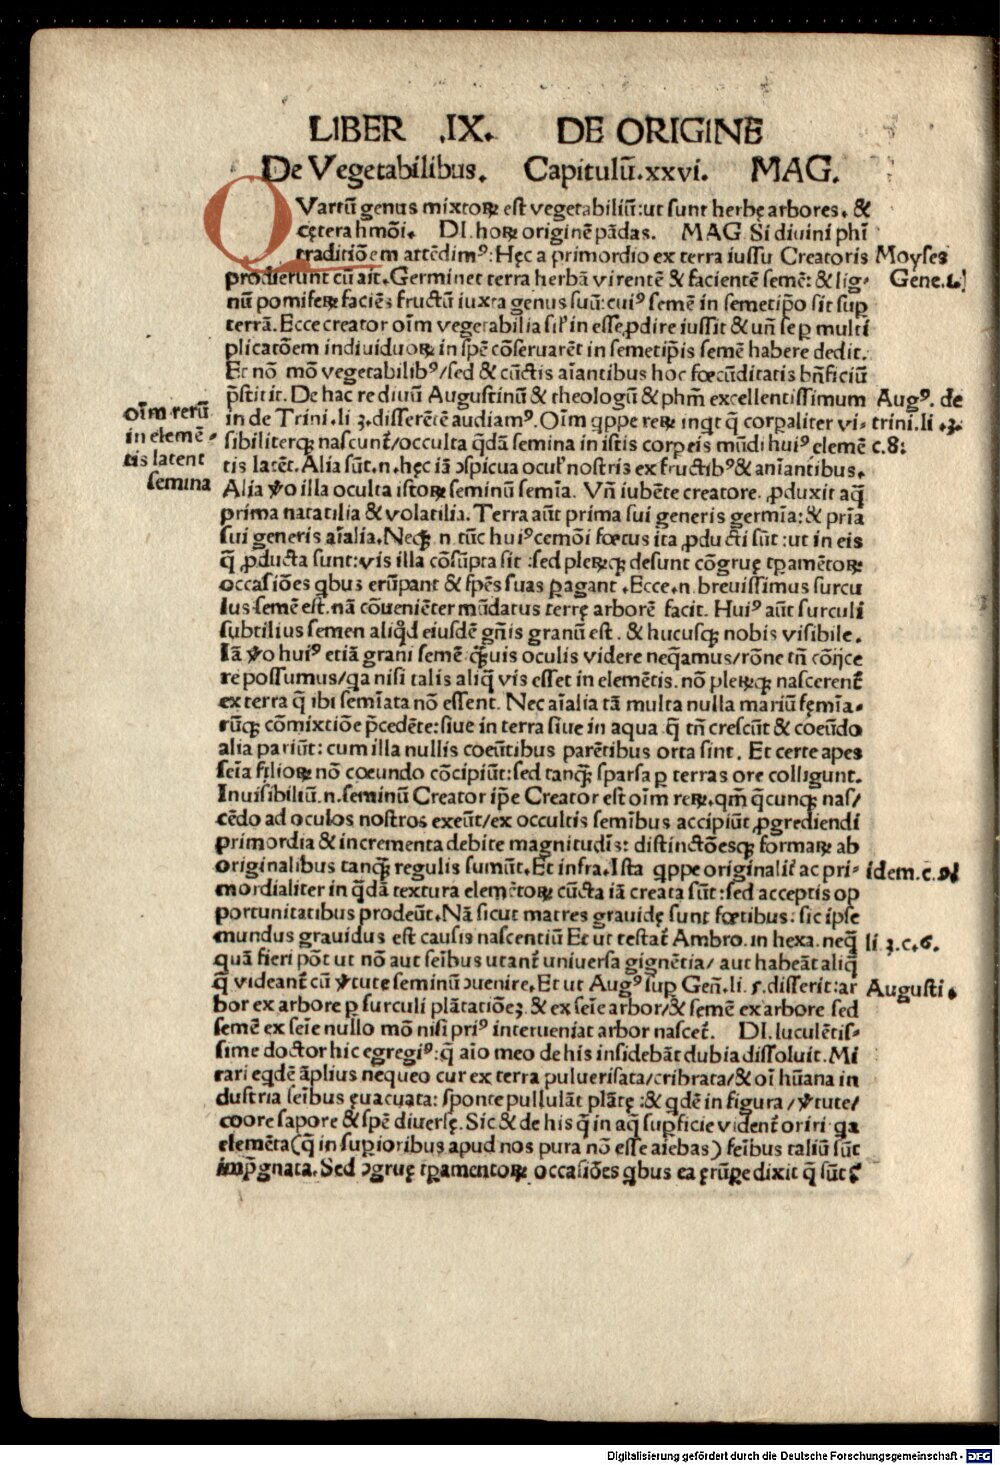 LIBER .IX. DE ORIGINE
De Vegetabilibus. Capitulũ.xxvi. MAG.
QVartũ genus mixtoꝝ est vegetabiliũ:ut sunt herbę arbores. &
cętera hmõi. DI. hoꝝ originẽ pãdas. MAG. Si diuini phĩ
traditiõem attẽdimꝰ: Hęc a primordio ex terra iussu Creatoris
Moyses
prodierunt cũ ait. Germinet terra herbã virentẽ & facientẽ semẽ: & lig-
Gene.1.
nũ pomifeꝝ faciẽs fructũ iuxta genus suũ: cuiꝰ semẽ in semetip̃o sit sup̱
terrã. Ecce creator oĩm vegetabilia siĺ in esse ꝓdire iussit & uñ se p̱ multi
plicatõem indiuiduoꝝ in sp̃e cõseruarẽt in semetip̃is semẽ habere dedit.
Et nõ mõ vegetabilibꝰ/sed & cũctis aĩantibus hoc fœcũditatis bñficiũ
p̃stitit. De hac re diuũ Augustinũ & theologũ & phm̃ excellentissimum
Augꝰ. de
in de Trini. li ꝫ. disserẽtẽ audiamꝰ. Oĩm qppe reꝝ inqt q̃ corp̱aliter vi-
trini. li .ꝫ.
sibiliterqꝫ nascunt̃/occulta q̃dã semina in istis corp̱eis mũdi huiꝰ elemẽ
c.8:
oĩm rerũ
in elemẽ-
tis latent
semina
tis latẽt. Alia sũt.n.hęc iã ꝯspicua ocuĺ nostris ex fructibꝰ & anĩantibus.
Alia ꝟo illa occulta istoꝝ seminũ semĩa. Vñ iubẽte creatore. ꝓduxit aq̃
prima natatilia & volatilia. Terra aũt prima sui generis germĩa: & prĩa
sui generis aĩalia. Neqꝫ n. tũc huiꝰcemõi fœtus ita ꝓducti sũt: ut in eis
q̃ ꝓducta sunt: vis illa cõsũpta sit: sed pleꝝqꝫ desunt cõgruę tp̱amẽtoꝝ
occasiões qbus erũpant & sp̃es suas p̱agant. Ecce.n. breuissimus surcu
lus semẽ est. nã cõueniẽter mũdatus terrę arborẽ facit. Huiꝰ aũt surculi
subtilius semen aliq̃d eiusdẽ gñis granũ est. & hucusqꝫ nobis visibile.
Iã ꝟo huiꝰ etiã grani semẽ q̃ꝫuis oculis videre neq̃amus/rõne tñ cõijce
re possumus/qa nisi talis aliq̃ vis esset in elemẽtis. nõ pleꝝqꝫ nascerent̃
ex terra q̃ ibi semĩata nõ essent. Nec aĩalia tã multa nulla mariũ fęmĩa-
rũqꝫ cõmixtiõe p̃cedẽte: siue in terra siue in aqua q̃ tñ crescũt & coeũdo
alia pariũt: cum illa nullis coeũtibus parẽtibus orta sint. Et certe apes
seĩa filioꝝ nõ coeundo cõcipiũt: sed tanqꝫ̃ sparsa p̱ terras ore colligunt.
Inuisibiliũ.n.seminũ Creator ip̃e Creator est oĩm reꝝ.qm̃ q̃cunqꝫ nas/
cẽdo ad oculos nostros exeũt/ex occultis semĩbus accipiũt ꝓgrediendi
primordia & incrementa debite magnitudĩs: distinctõesqꝫ formaꝝ ab
originalibus tanqꝫ̃ regulis sumũt. Et infra. Ista qppe originalit̃ ac pri-
idem.c.9
mordialiter in q̃dã textura elemẽtoꝝ cũcta iã creata sũt: sed acceptis op
portunitatibus prodeũt. Nã sicut matres grauidę sunt fœtibus: sic ipse
mundus grauidus est causis nascentiũ Et ut testat̃ Ambro. in hexa. neq̃
li ꝫ.c.6.
quã fieri põt ut nõ aut seĩbus utant̃ universa gignẽtia/ aut habeãt aliq̃
q̃ videant̃ cũ ꝟtute seminũ ꝯuenire. Et ut Augꝰ sup̱ Geñ. li. 5. disserit: ar
Augusti.
bor ex arbore p̱ surculi plãtatiõeꝫ. & ex seĩe arbor/& semẽ ex arbore sed
semẽ ex seĩe nullo mõ nisi priꝰ interueniat arbor nascet̃. DI. luculẽtis-
sime doctor hic egregiꝰ: q̃ aĩo meo de his insidebãt dubia dissoluit. Mi
rari eqdẽ ãplius nequeo cur ex terra puluerisata/cribrata/& oĩ hũana in
dustria seĩbus ęuacuata: sponte pullulãt plãtę: & qdẽ in figura /ꝟtute/
coore sapore & sp̃e diuersę. Sic & de his q̃ in aq̃ sup̱ficie vident̃ oriri qa
elemẽta(q̃ in sup̱ioribus apud nos pura nõ esse aĩebas) seĩbus taliũ sũt
imp̃gnata. Sed ꝯgruę tp̱amentoꝝ occasiões qbus ea ęrũp̱e dixit q̃ sũt?
Digitalisierung gefördert durch die Deutsche Forschungsgemeinschaft - DFG